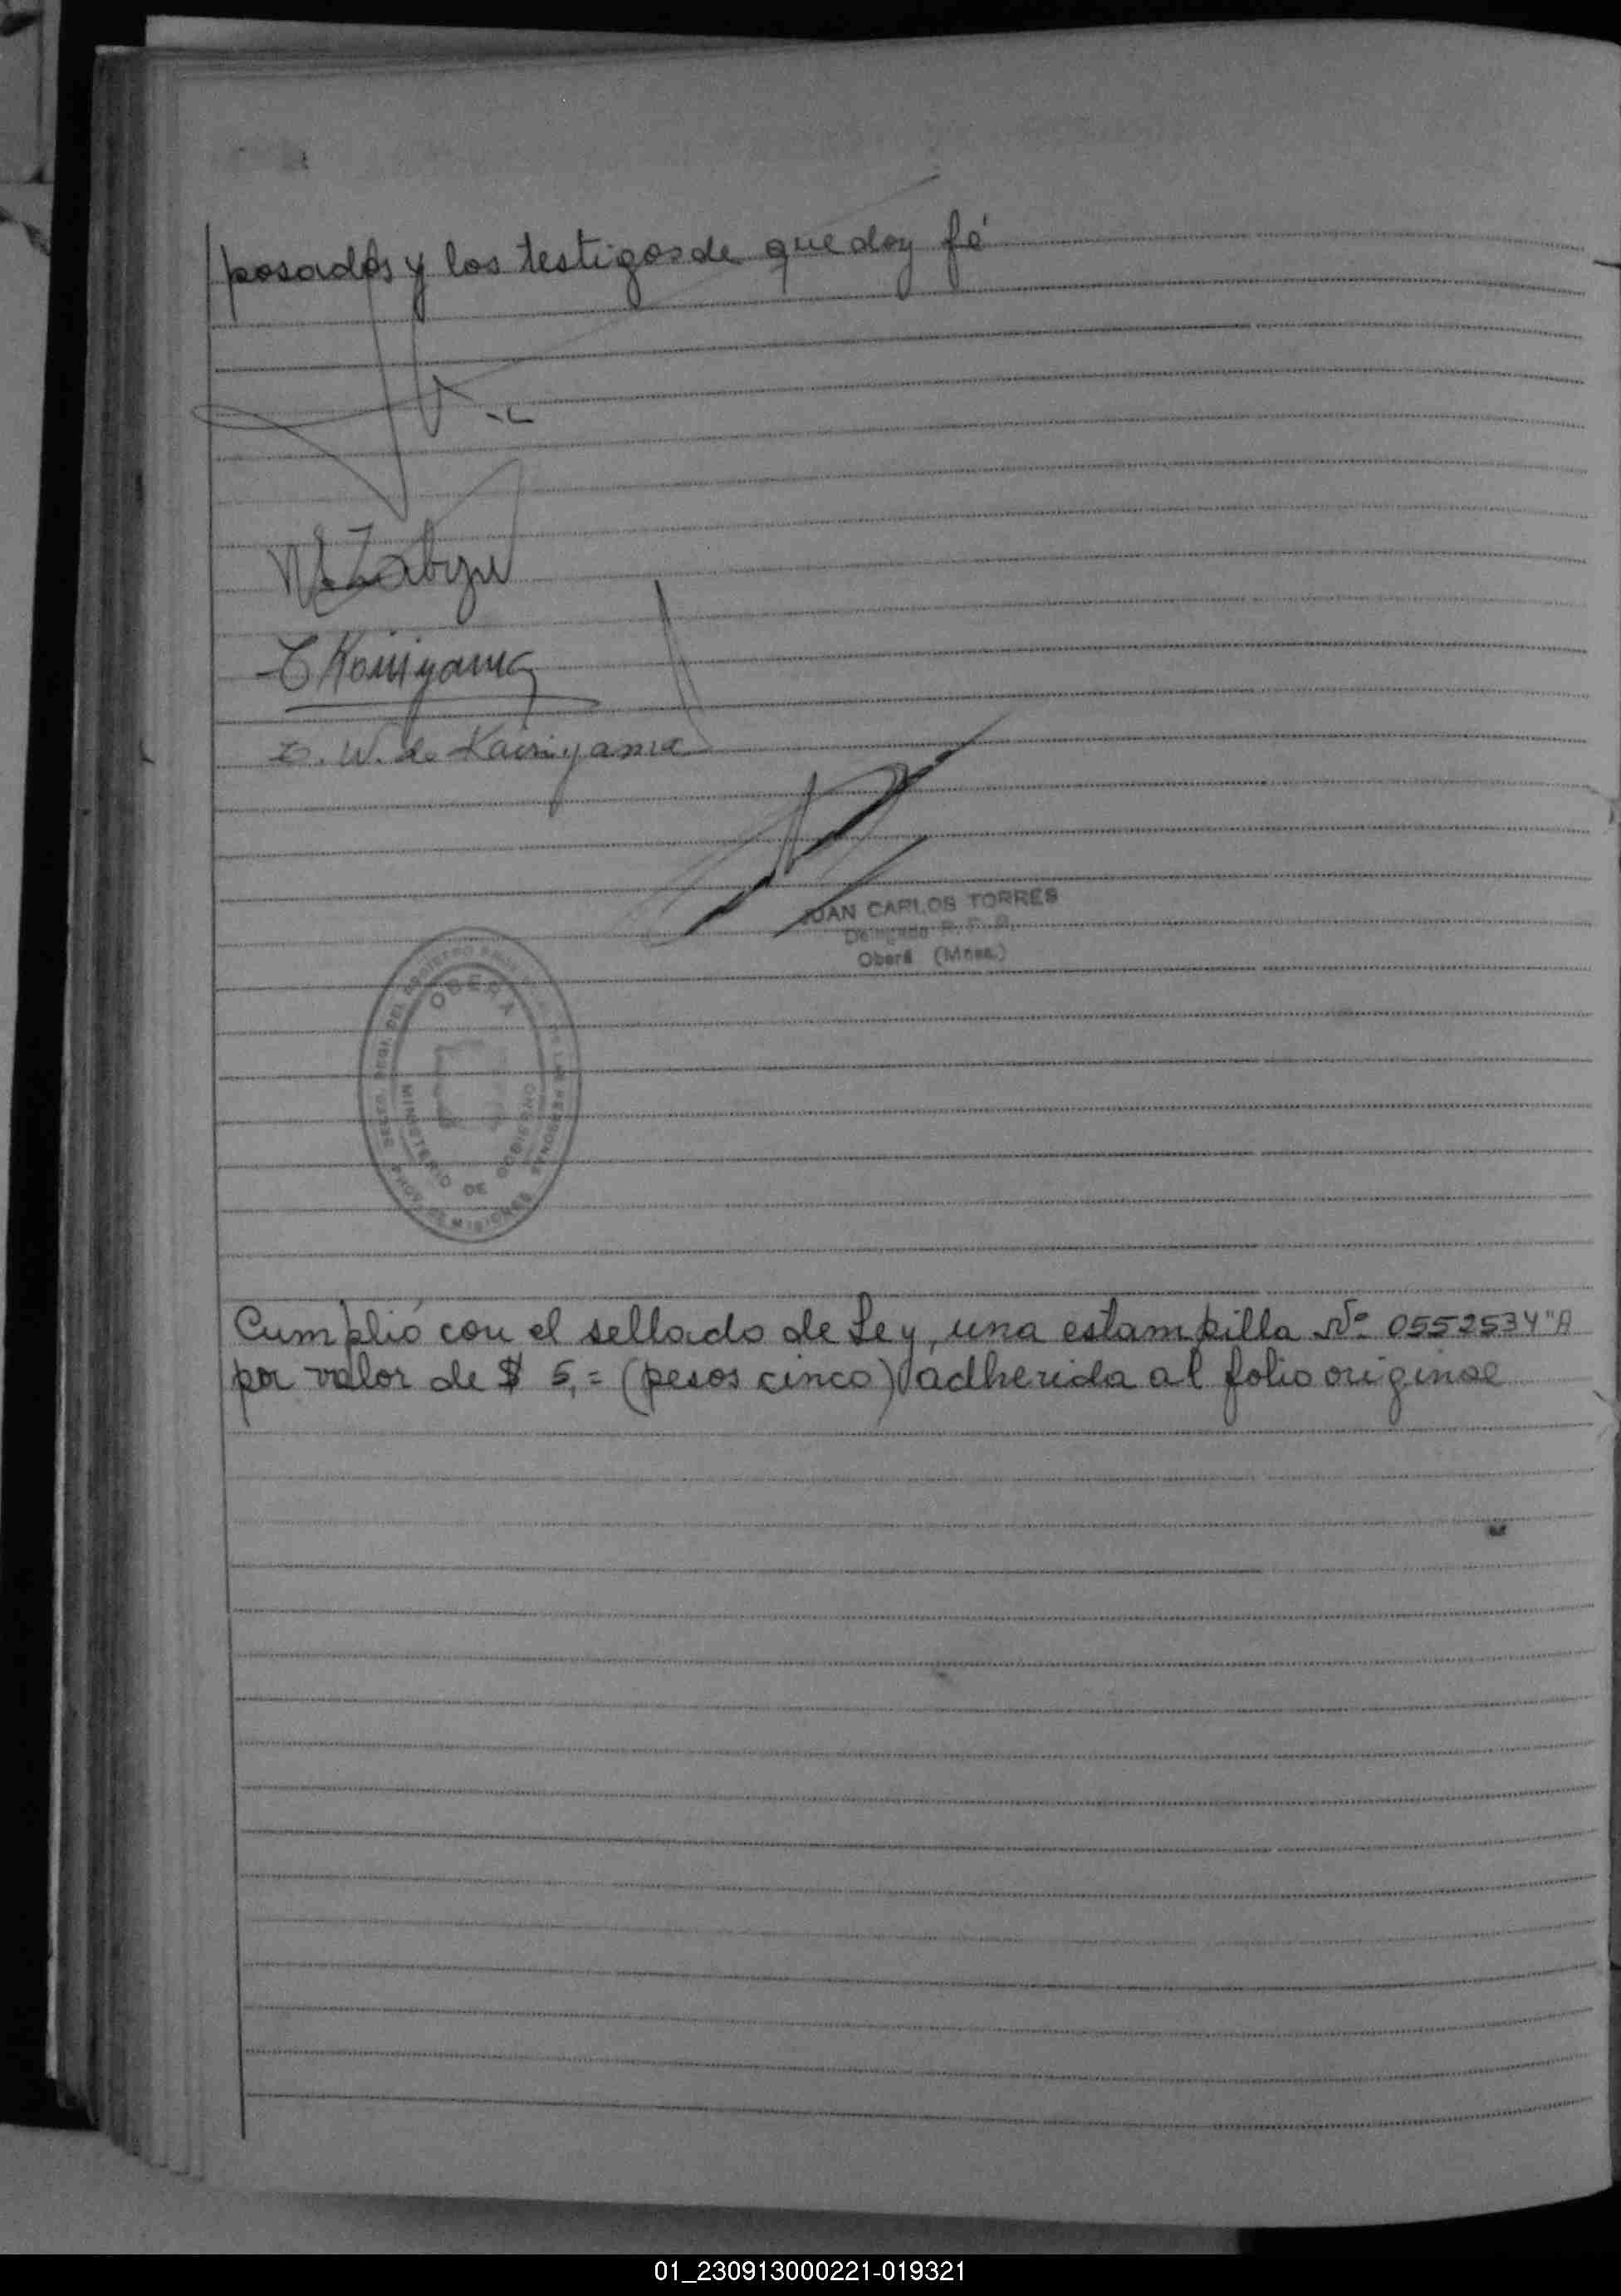 posados y los testigos de que doy fé
T Koriyama
E. W. de Koriyama
JUAN CARLOS TORRES
Delegado R. P. P.
Oberá (Mnes.)
OBERÁ
MINISTERIO DE GOBIERNO
DE LAS PERSONAS
DE MISIONES
Cumplió con el sellado de Ley, una estampilla Nº 0552534 "A
por valor de $ 5,= (pesos cinco) adherida al folio original
01_230913000221-019321